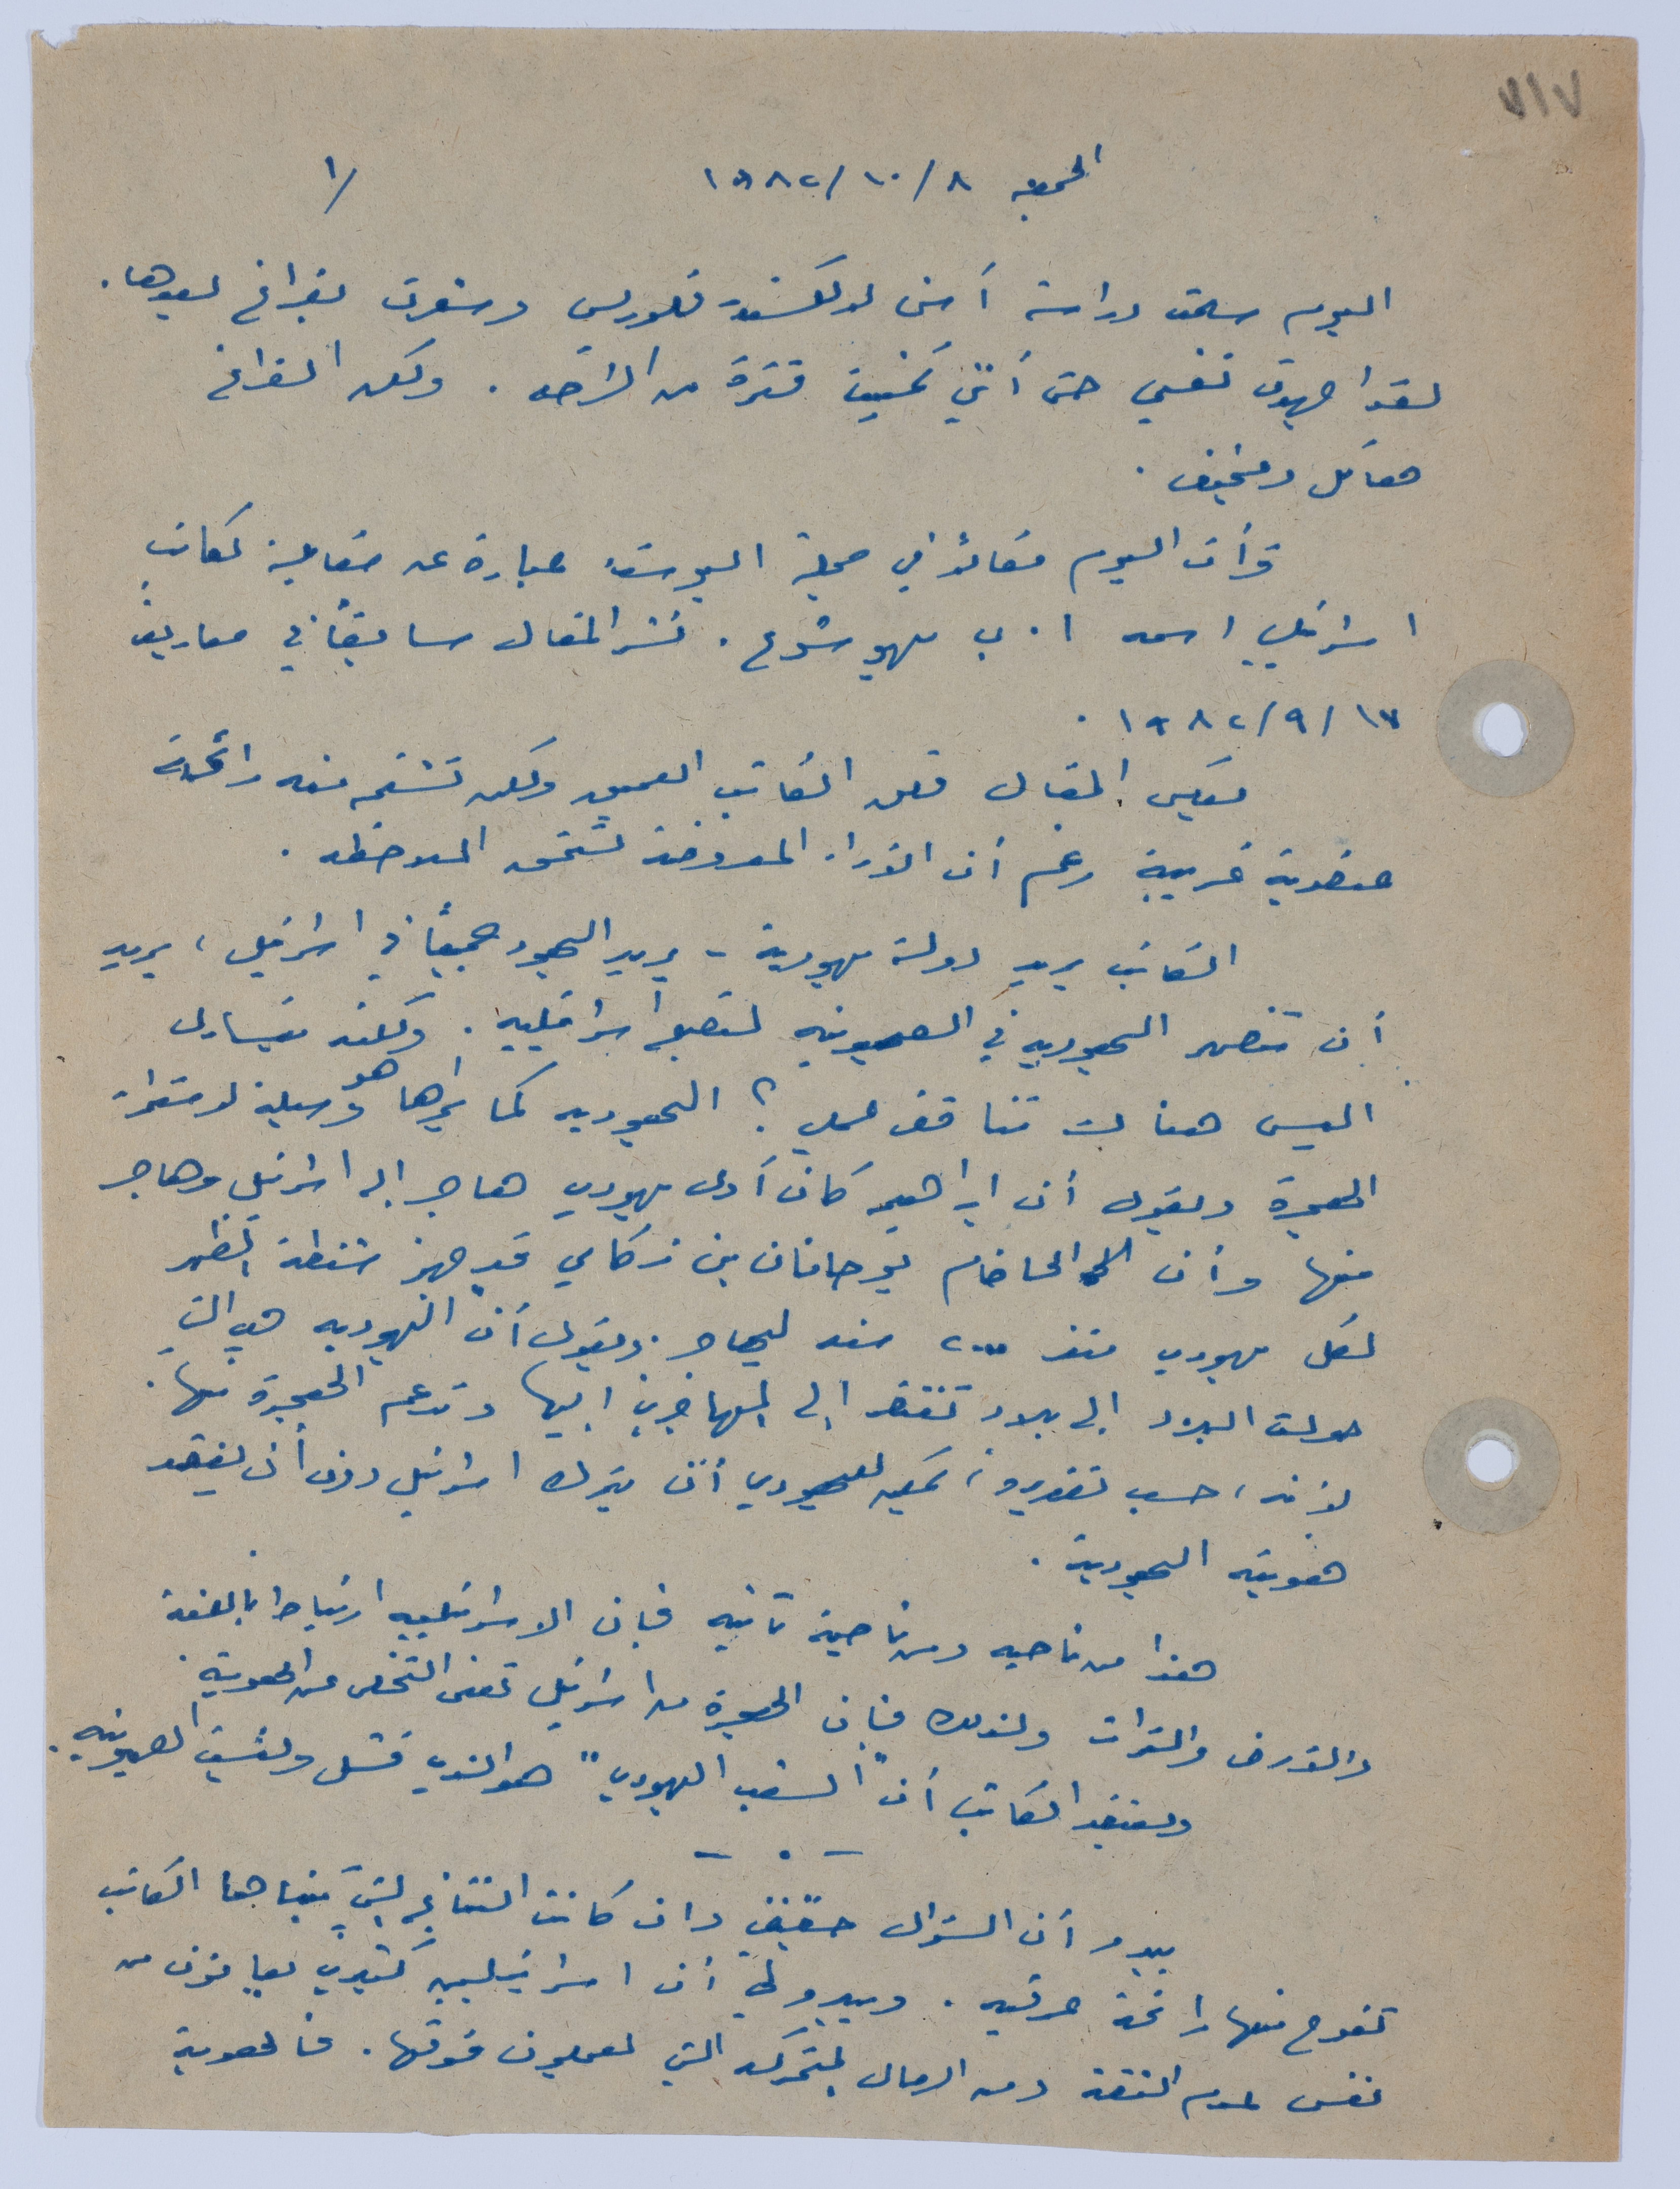 ٧١٧
الجمعه ٨/١٠/١٩٨٢ ١/
اليوم سلمت دراسة أمس لألكسندر فلورس وشعرت بفراغ بعدها.
لقد اجهدت نفسي حتى أنني تمنيت فترة من الراحه. ولكن الفراغ
هائل ومخيف.
قرأت اليوم مقالاً في مجلة البوست عبارة عن مقابلة لكاتب
اسرائيلي اسمه ا. ب يهوشوع. نشر المقال سابقاً في معاريف
١٧/٩/١٩٨٢.
يعكس المقال قلق الكاتب العميق ولكن تشتم منه رائحة
عنصرية غريبة رغم أن الآراء المعروضة تستحق الملاحظه.
الكاتب يريد دولة يهودية - يريد اليهود جميعاً في اسرائيل، يريد
أن تنصهر اليهوديه في الصهيونيه لتصبح اسرائيليه. ولكنه يتساءل
اليس هناك تناقض عملي؟ اليهوديه كما يراها هو وسيلة لاستمرار
الهجرة ويقول أن ابراهيم كان أول يهودي هاجر الى اسرائيل وهاجر
منها وأن الحاخام يوحانان بن زكاي قد جهز شنطة الظهر
لكل يهودي منذ ٢٠٠٠ سنه ليهاجر. ويقول أن اليهوديه هي التي
حولت البلاد الى بلاد تفتقر الى المهاجرين اليها وتدعم الهجرة منها.
لأنه، حسب تقديره، يمكن لليهودي أن يترك اسرائيل دون أن يفقد
هويته اليهودية.
هذا من ناحيه ومن ناحية ثانيه فان الاسرائيليه ارتباط باللغة
والأرض والتراث ولذلك فان الهجرة من اسرائيل تعني التخلص من الهوية.
ويعتقد الكاتب أن "الشعب اليهودي" هو الذي فشل وليست الصهيونيه.
— . —
يبدو أن السؤال حقيقي وان كانت النتائج التي يتبناها الكاتب
تفوح منها رائحة عرقيه. ويبدو لي أن اسرائيليين كثيرين يعانون من
نفس عدم الثقة ومن الرمال المتحركه التي يعملون فوقها. فالهوية